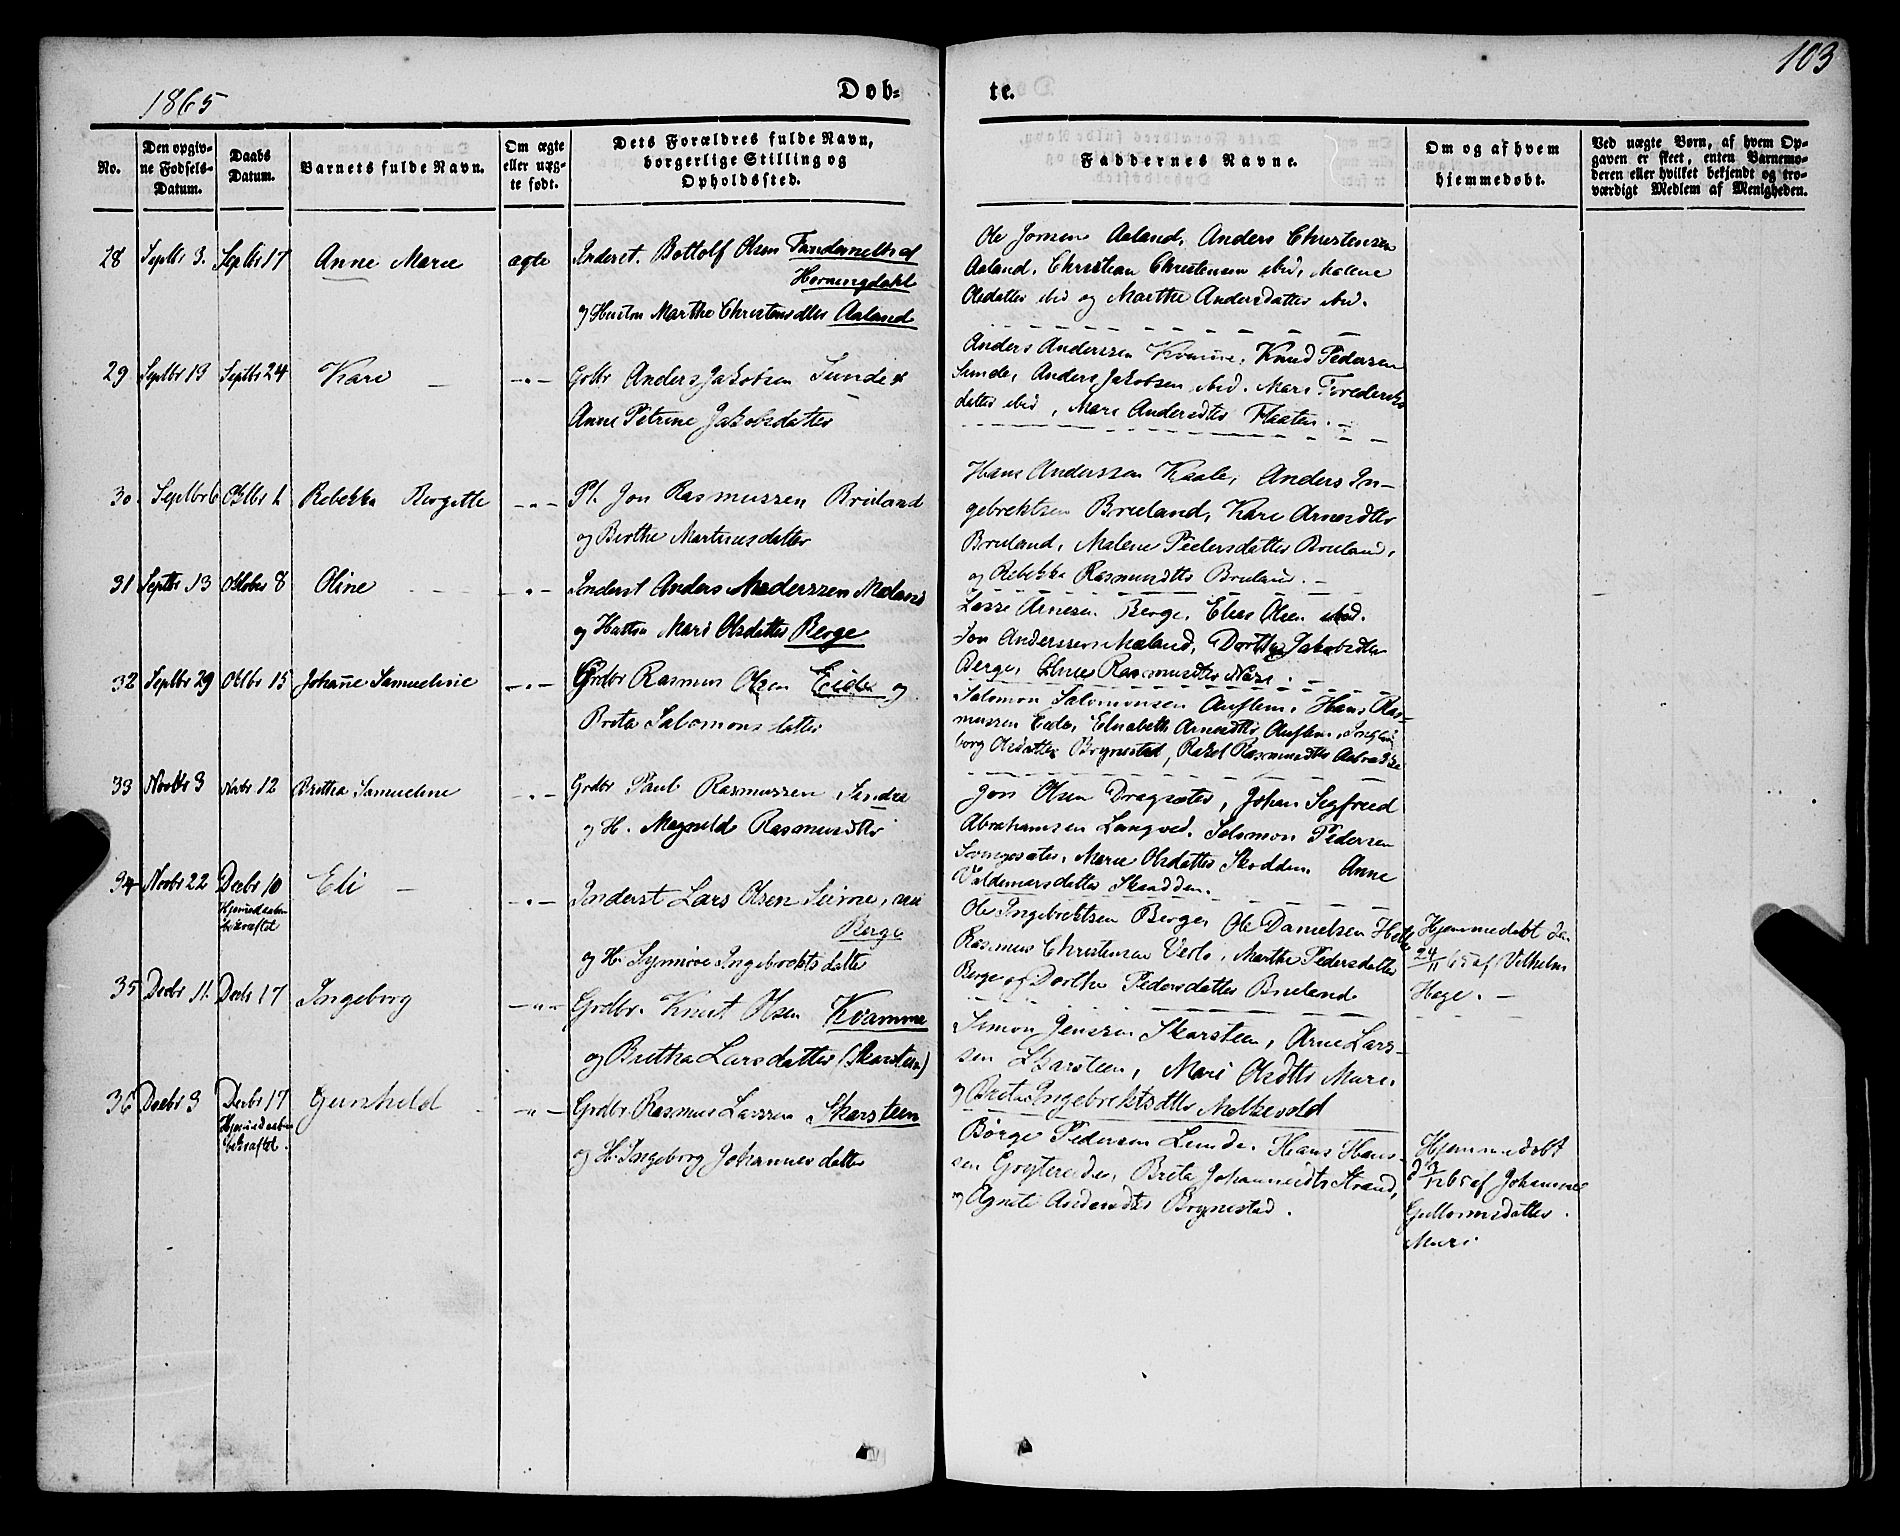 103
1865
Døb-
te.
No.
Den opgiv-
ne Fødsels-
Datum.
Daabs
Datum.
Barnets fulde Navn.
Om ægte
eller uæg-
te født.
Dets Forældres fulde Navn,
borgerlige Stilling og
Opholdssted.
Faddernes Navne.
Om og af hvem
hjemmedøbt.
Ved uægte Børn, af hvem Op-
gaven er skeet, enten Barnemo-
deren eller hvilket bekjendt og tro-
værdigt Medlem af Menigheden.
28
Septbr 3.
Septbr 17
Anne Marie
ægte
Inderst. Bottolf Olsen
Horningdahl
og Hustru Marthe Christensdtr Aaland
Ole Jonsen Aaland, Anders Christensen
Aaland, Christian Christensen ibid, Malene
Olsdatter ibid og Marthe Andersdatter ibid.
29
Septbr 13
Septbr 24
Kari
-"-
Grdbr Anders Jakobsen Sunde &
Anne Petrine Jakobsdatter
Anders Anderssen Kvamme, Knud Pedersen
Sunde, Anders Jakobsen ibid. Mari Frederiks
datter ibid, Mari Andersdtr Flaaten.
30
Septbr 6
Oktbr 1
Rebekka Bergitte
-"-
Pl. Jon Rasmussen Bruland
og Berthe Martinusdatter
Hans Anderssen Kaale, Anders In-
gebrektsen Bruland, Kari Arnesdtr
Bruland, Malene Pedersdatter Bruland,
og Rebekka Rasmusdtr Bruland.
31
Septbr 13
Oktober 8
Oline
-"-
Inderst Anders Anderssen Mæland
og Hustru Mari Olsdatter Berge
Lasse Arnesen Berge, Elias Olsen ibid.
Jon Anderssen Mæland, Dorthe Jakobsdtr
Berge, Rasmusdtr
32
Septbr 29
Oktbr 15
Johanne Samueline
-"-
Grdbr Rasmus Olsen Eide og
Brita Salomonsdatter
Salomon Salomonsen Auflem, Hans Ras-
mussen Eide, Elisabeth Arnesdtr Auflem, Inge-
borg Olsdatter Brynestad, Rakel Rasmusdtr
33
Novbr 3
Novbr 12
Brithe Samueline
-"-
Grdbr Paul Rasmussen Sindre
og H. Magnild Rasmusdtr
Jon Olsen Dragsæter, Johan Sigfried
Abrahamsen Langved, Salomon Pedersen
Marie Olsdatter Skodden Anne
Valdemarsdatter Skaadden.
34
Novbr 22
Decbr 10
Hjemmedaaben
bekræftet
Eli
-"-
Inderst Lars Olsen Seime, nu
Berge
og H. Synnøve Ingebrektsdatter
Ole Ingebrektsen Berge, Ole Danielsen
Rasmus Christensen Verlo, Marthe Pedersdatter
Berge og Dorthe Pedersdatter Bruland
Hjemmedøbt den
24/11 65 af Vilhelm
Hage.
35
Decbr 11.
Decbr 17
Ingeborg
-"-
Grdbr. Knut Olsen Kvamme
og Britha Larsdatter (Skarsteen)
Simon Jenssen Skarsteen, Arne Lars-
sen Skarsteen, Mari Olsdtr Muri
og Brita Ingebrektsdtr Melkevold
36
Decbr 3
Decbr 17
Hjemmedaaben
bekræftet.
Gunhild
-"-
Grdbr. Rasmus Larssen Skarsteen
og H. Ingeborg Johannesdatter
Børge Pedersen Lunde, Hans Hans-
sen Brita Johannesdtr Strand,
og Agnete Andersdtr Brynestad.
Hjemmedøbt
af Johanne
Guttormsdatter
Muri